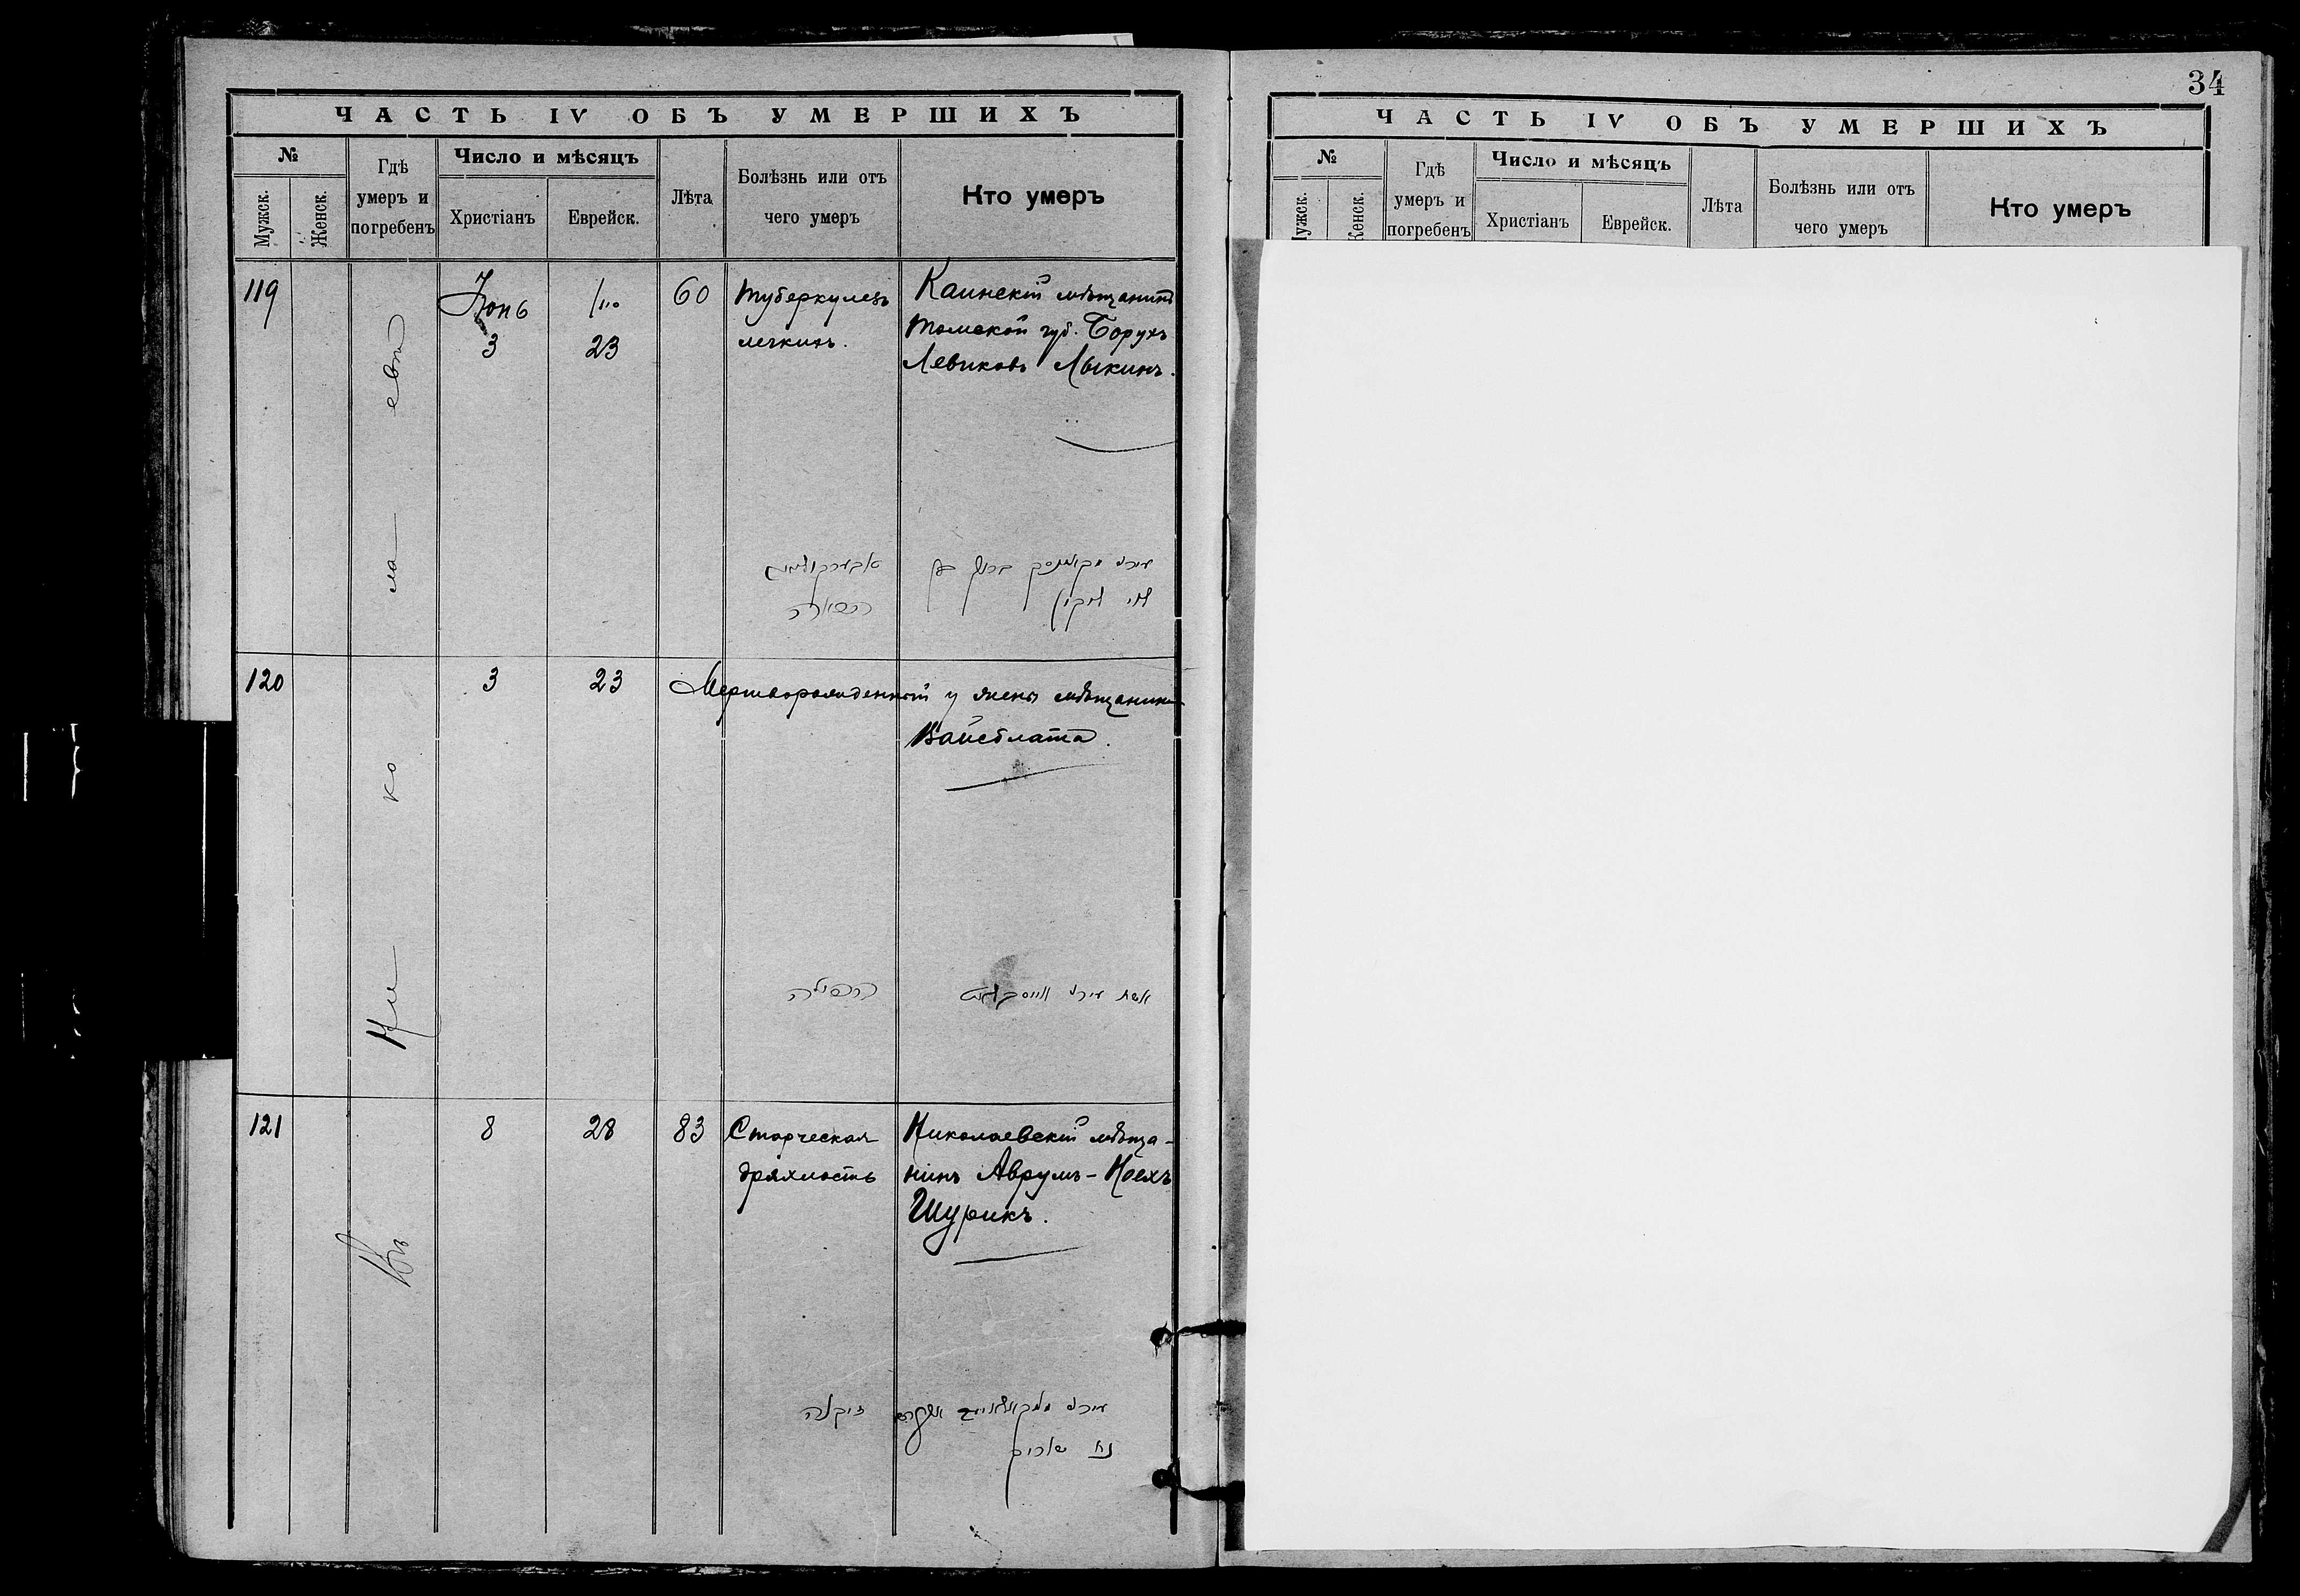 34
ЧАСТЬ IV ОБЪ УМЕРШИХЪ
№
Мужск.
Женск.
Гдѣ
умеръ и
погребенъ
Число и мѣсяцъ
Христіанъ
Еврейск.
Лѣта
Болѣзнь или отъ
чего умеръ
Кто умеръ
119
Іюнь
3
23
60
Туберкулезъ
легкихъ.
Каинскій мѣщанинъ
Томской губ. Борухъ
Левиковъ Лыкинъ.
120
3
23
Мертворожденный у жены мѣщанина
Вайсблата.
121
8
28
83
Старческая
дряхлость
Николаевскій мѣща-
нинъ Аврумъ-Ноехъ
Шурикъ.
זיקנה
נח שוריק
Въ Николаевѣ
ЧАСТЬ IV ОБЪ УМЕРШИХЪ
№
Гдѣ
умеръ и
погребенъ
Число и мѣсяцъ
Христіанъ
Еврейск.
Лѣта
Болѣзнь или отъ
чего умеръ
Кто умеръ